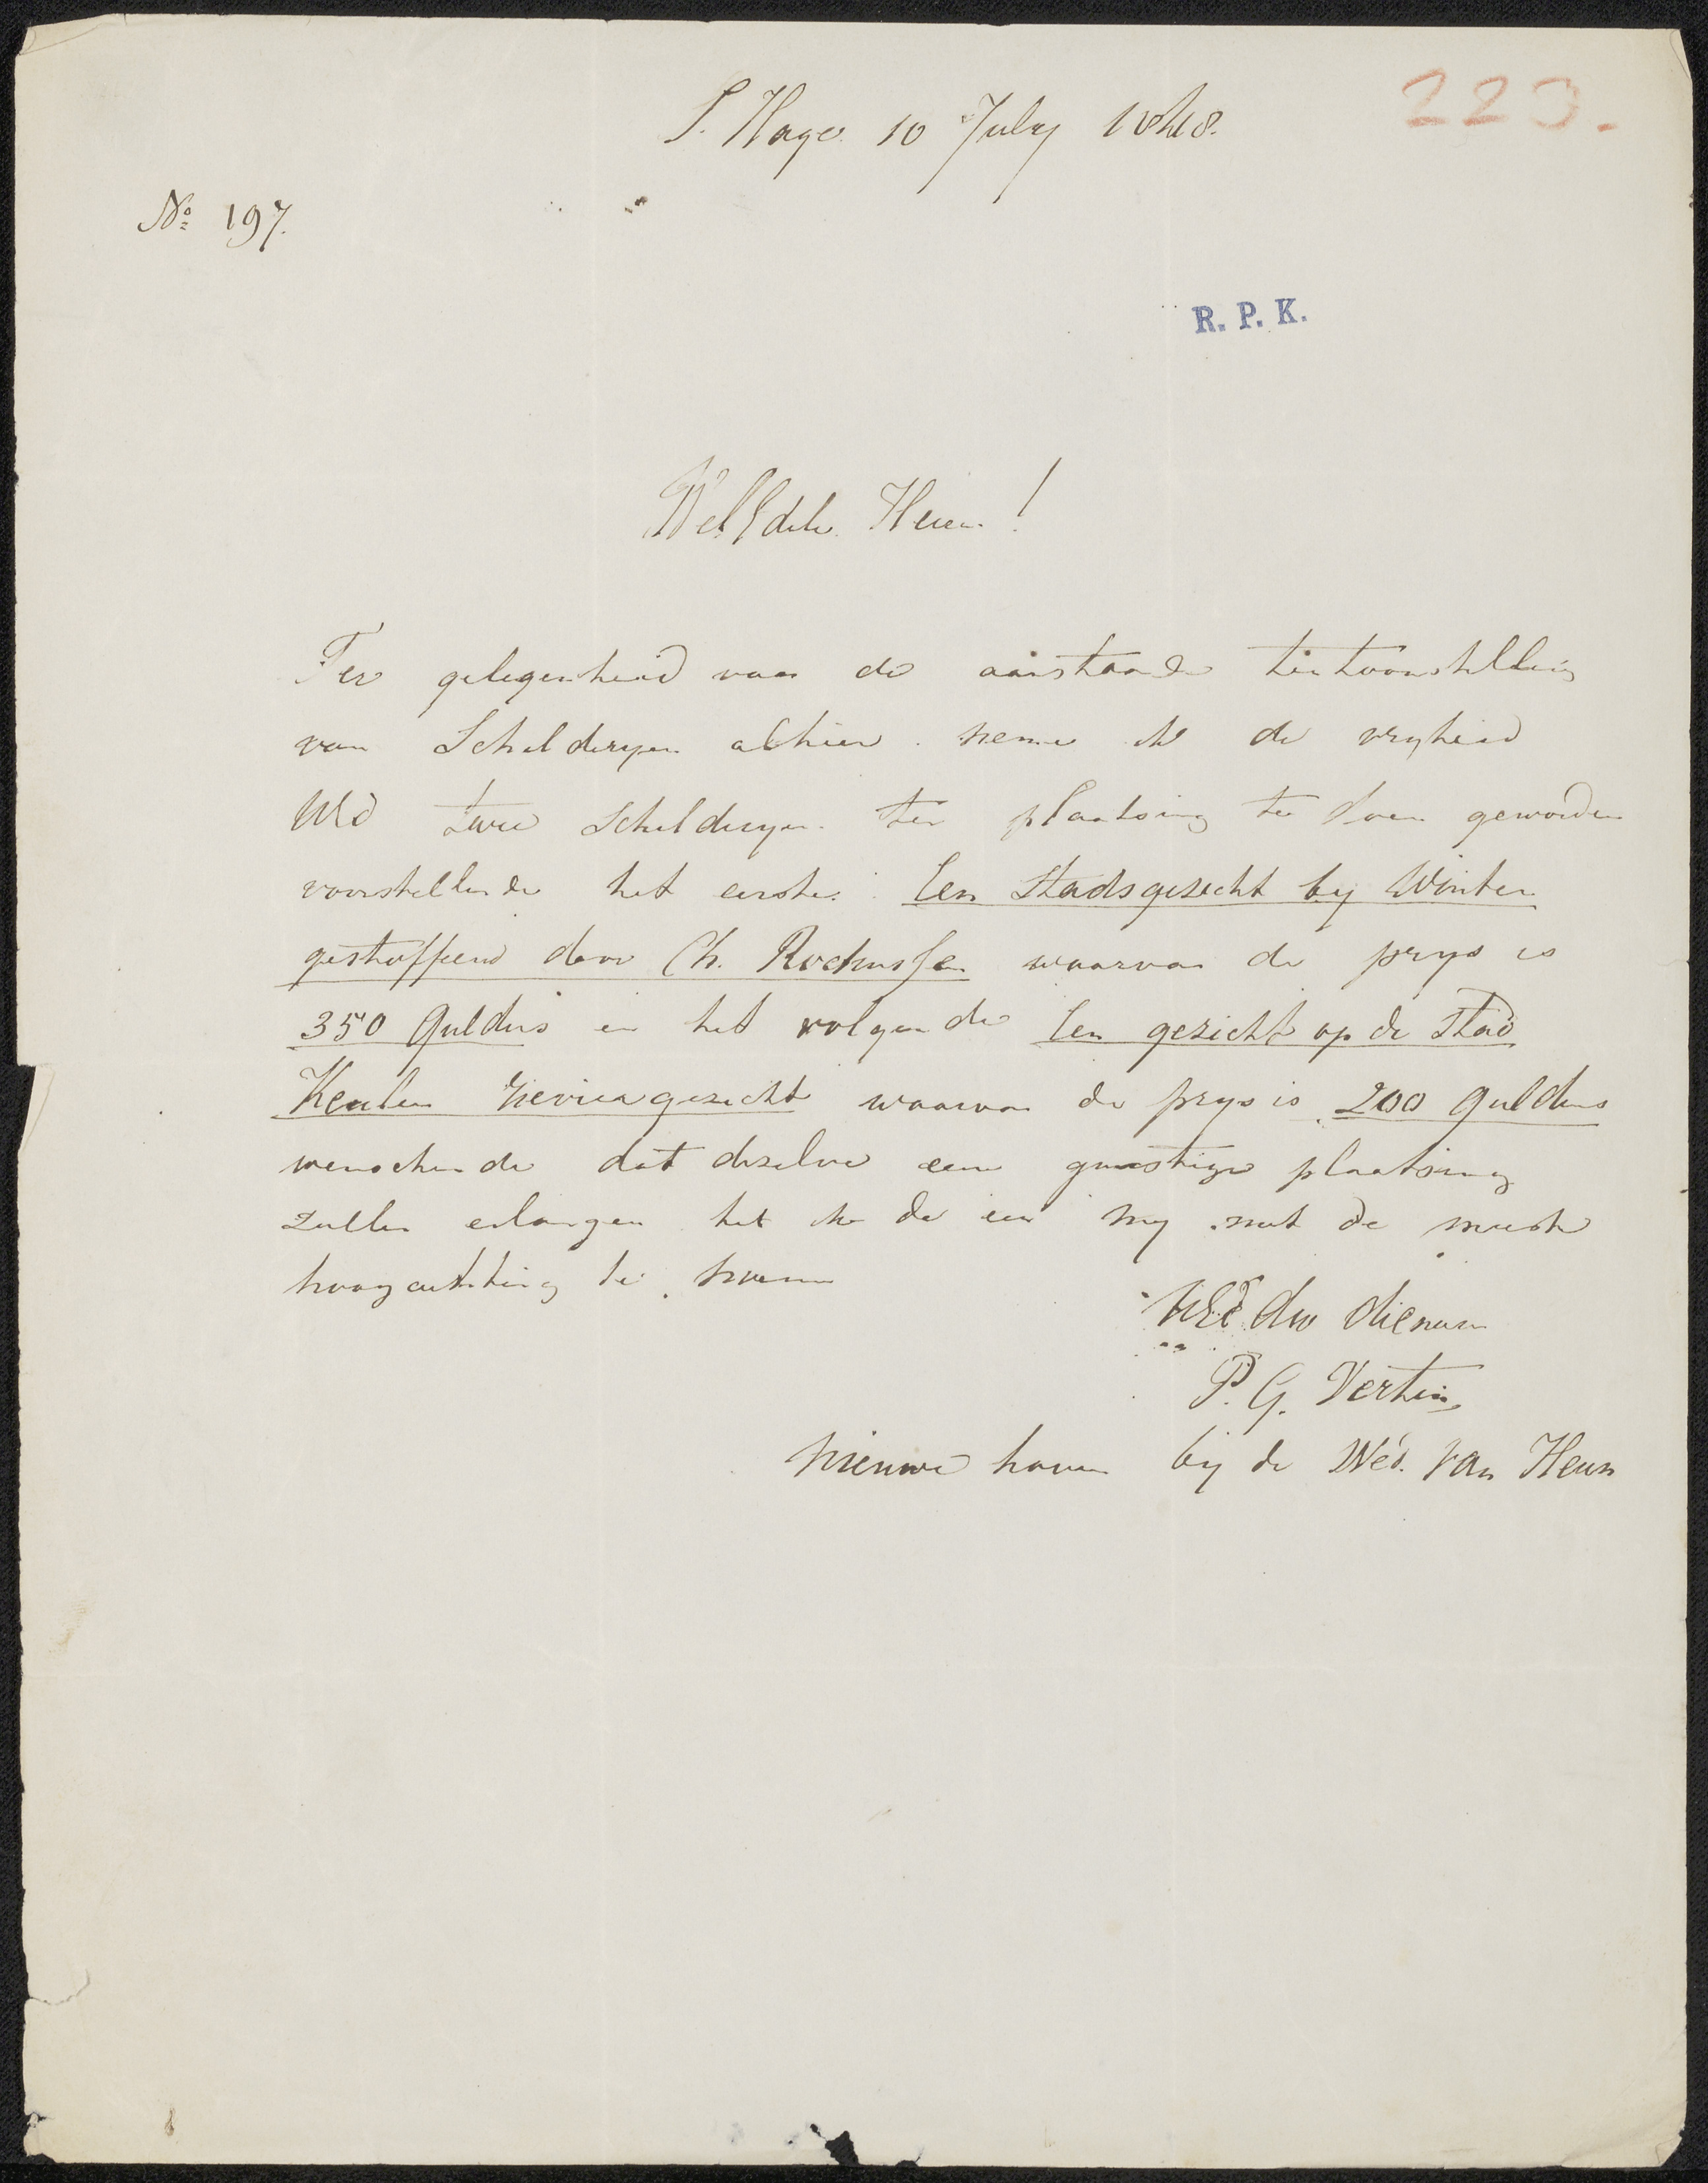 223.
S. Hage 10 July 1848.
No 197.
R. P. K.
WelEdele Heeren!
Ter gelegenheid van de aanstaande tentoonstelling
van Schilderyen alhier neme ik de vryheid
UEd twee Schilderyen ter plaatsing te doen geworden
voorstellende het eerste: Een Stadsgezicht by Winter
gestoffeerd door Ch. Rochussen waarvan de prys is
350 Guldens en het volgende Een gezicht op de Stad
Keulen Riviergezicht waarvan de prys is 200 Guldens
wenschende dat dezelve eene gunstige plaatsing
zullen erlangen heb ik de eer my met de meeste
hoogachting te noemen
UEd dw dienaar
P. G. Vertin
Nieuwe haven by de Wed. van